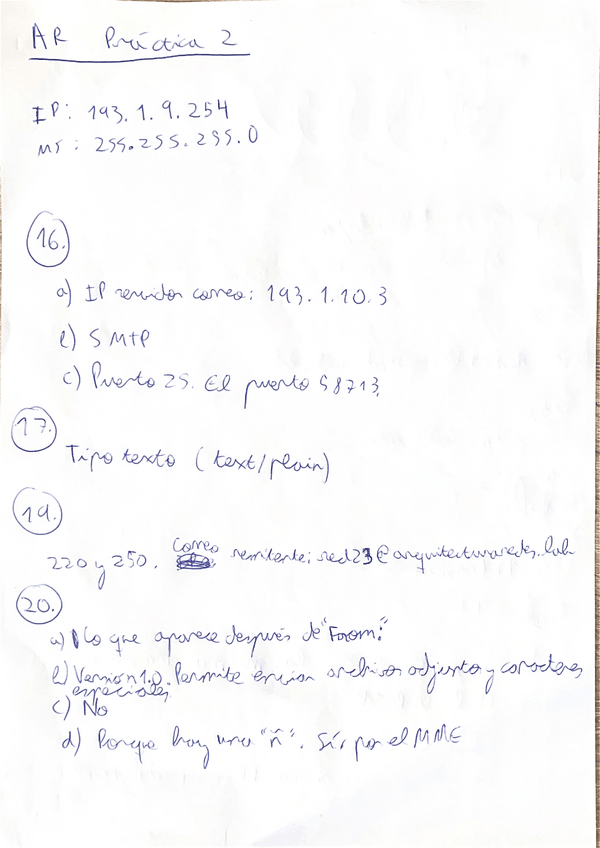 AR Práctica 2
IP: 193.1.9.254
MS: 255.255.255.0
16.
a) IP servidor correo: 193.1.10.3
b) SMTP
c) Puerto 25. El puerto 58713.
17.
Tipo texto (text/plain)
19.
220 y 250. Correo remitente: red23@arquitecturaredes.lab
20.
a) Lo que aparece después de "From:"
b) Version 1.0. Permite enviar archivos adjunto y caracteres
especiales
c) No
d) Porque hay una "ñ". Sí, por el MME